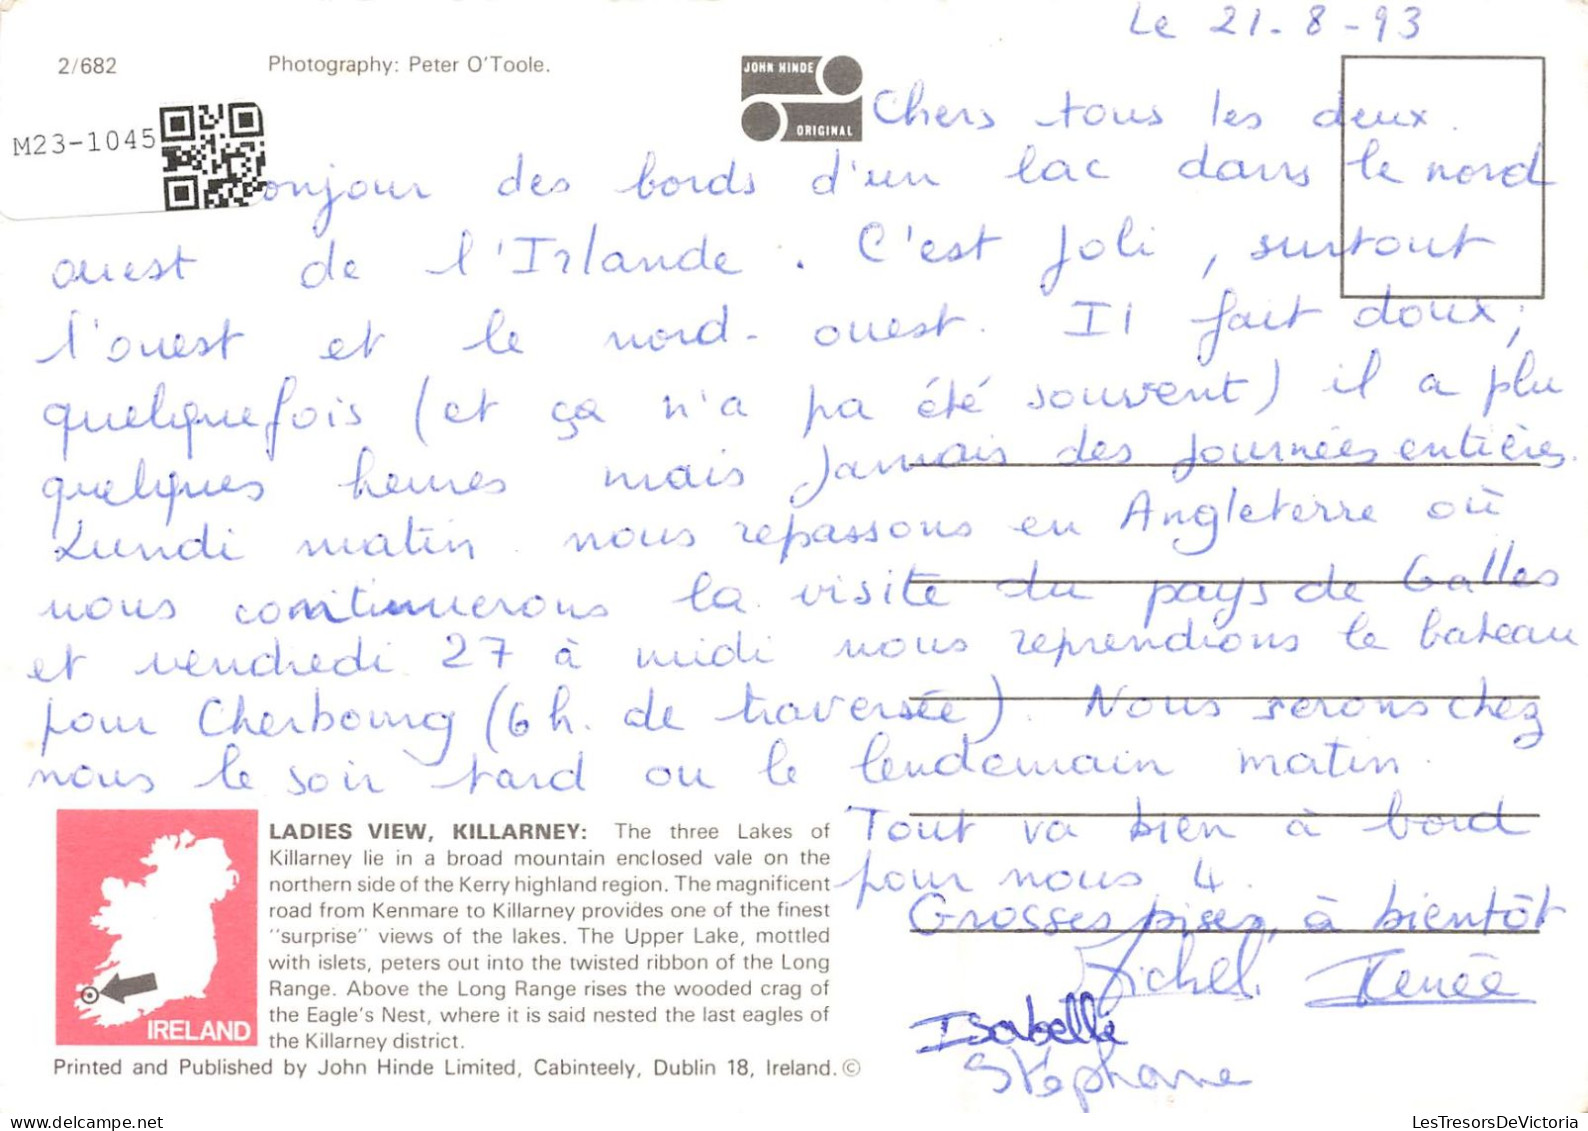 Le 21-8-93
2/682
Photography: Peter O'Toole.
JOHN HINDE
ORIGINAL
M23-1045
Chers tous les deux.
onjour des bords d'un lac dans le nord
ouest de l'Irlande. C'est joli, surtout
l'ouest et le nord-ouest. Il fait doux;
quelquefois (et ça n'a pa été souvent) il a plu
quelques heures mais jamais des journées entières.
Lundi matin nous repassons en Angleterre où
nous continuerons la visite du pays de Galles
et vendredi 27 à midi nous reprendrons le bateau
pour Cherbourg (6h. de traversée). Nous serons chez
nous le soir tard ou le lendemain matin.
Tout va bien à bord
pour nous 4.
Grosses bises, à bientôt
Michel Renée
Isabelle
Stéphane
LADIES VIEW, KILLARNEY: The three Lakes of
Killarney lie in a broad mountain enclosed vale on the
northern side of the Kerry highland region. The magnificent
road from Kenmare to Killarney provides one of the finest
"surprise" views of the lakes. The Upper Lake, mottled
with islets, peters out into the twisted ribbon of the Long
Range. Above the Long Range rises the wooded crag of
the Eagle's Nest, where it is said nested the last eagles of
the Killarney district.
IRELAND
Printed and Published by John Hinde Limited, Cabinteely, Dublin 18, Ireland.©
LesTresorsDeVictoria